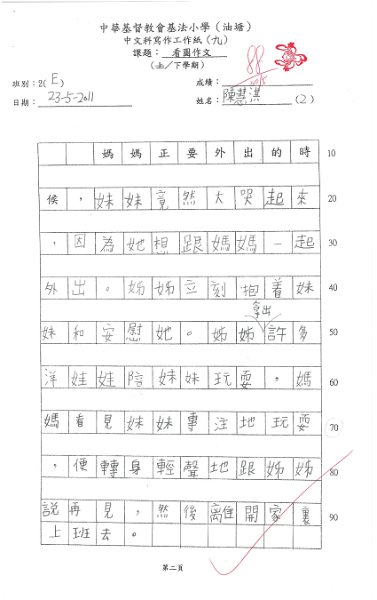 中華基督教會基法小學（油塘）
中文科寫作工作紙（九）
課題：看圖作文
（上／下學期）
88
班別：2(E) 成績：
日期：23-5-2011 姓名：陳慧淇 (2)
媽媽正要外出的時 10
候，妹妹竟然大哭起來 20
，因為她想跟媽媽一起 30
外出。姊姊立刻抱着妹 40
拿出
妹和安慰她。姊姊許多 50
洋娃娃陪妹妹玩耍。媽 60
媽看見妹妹專注地玩耍 70
，便轉身輕聲地跟姊姊 80
說再見，然後離開家裏 90
上班去。
第二頁